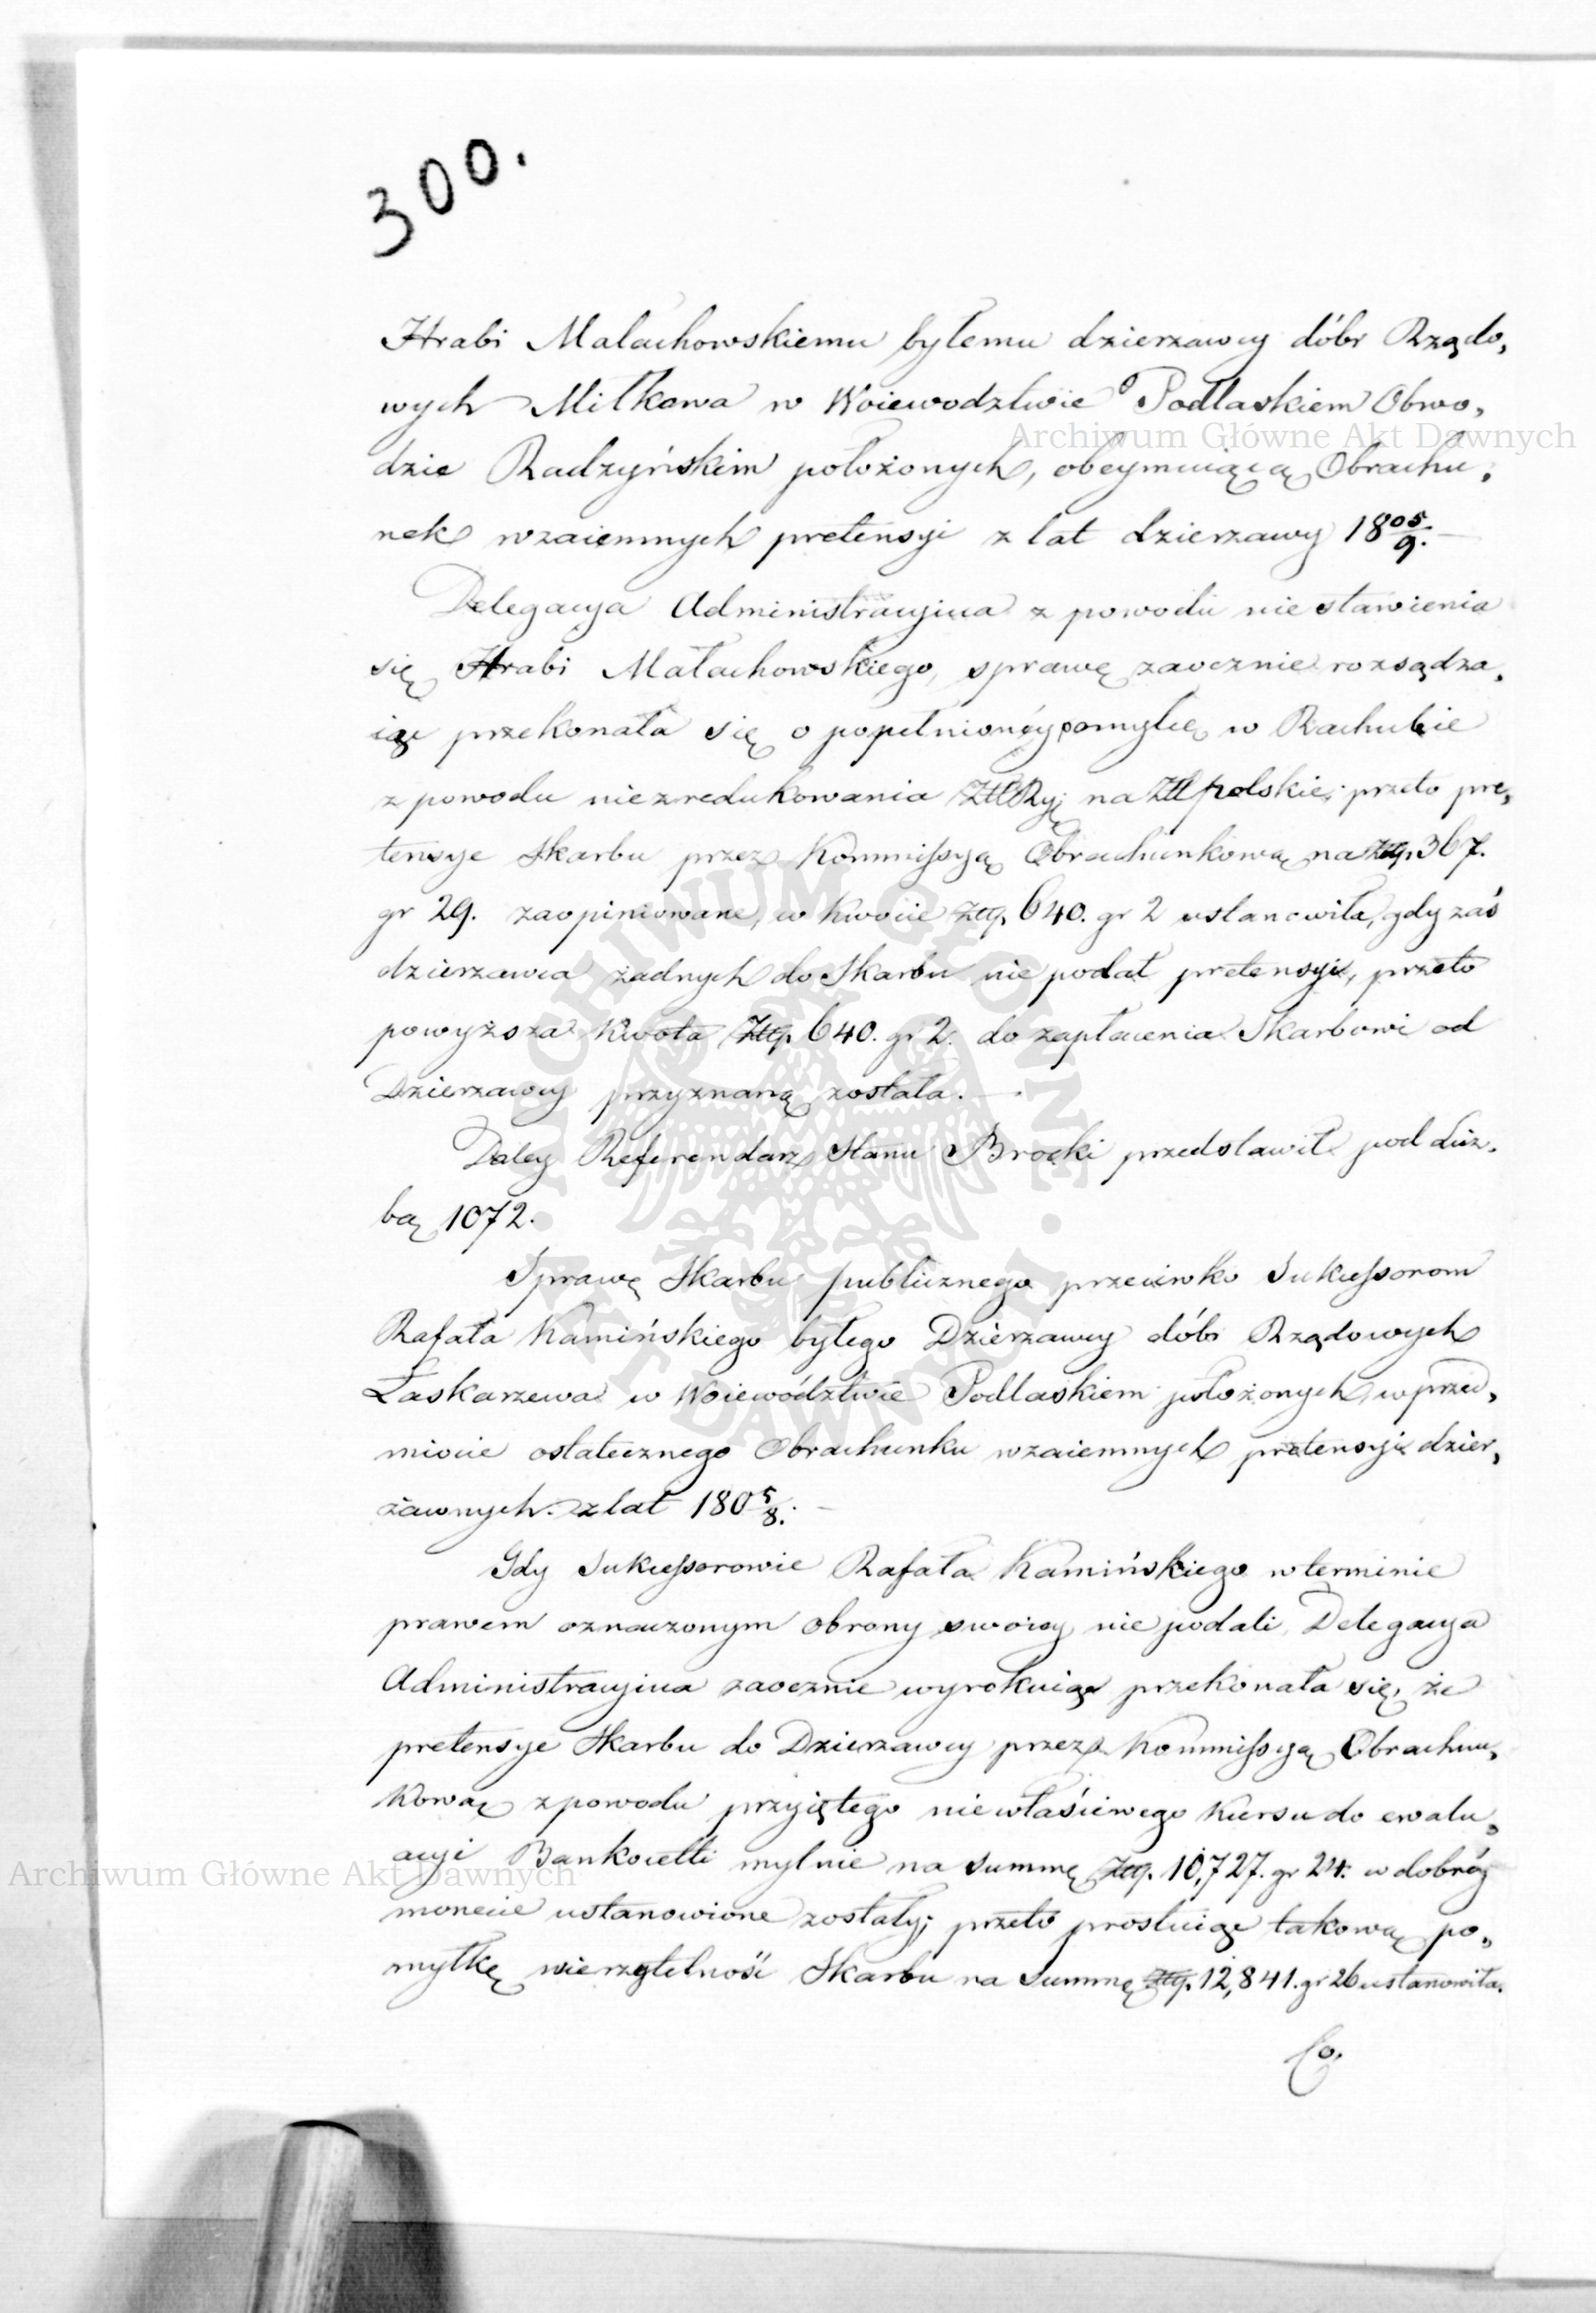 300.
Hrabi Małachowskiemu byłemu dzierzawcy dóbr Rządo„
wych Miłkowa w Woiewodztwie Podlaskiem Obwo„
Archiwum Główne Akt Dawnych
dzie Radzyńskim położonych, obeymuiącą Obrachu„
nek wzaiemnych pretensyi z lat dzierzawy 1805/9.
Delegacya Administracyina z powodu nie stawienia
się Hrabi Małachowskiego, sprawę zaocznie rozsądza„
iąc przekonała się o popełnionéy pomyłce w Rachubie
z powodu niezredukowania Złł Ry: na Złł polskie; przeto pre„
tensye Skarbu przez Kommissyą Obrachunkową na Złp. 367.
gr 29. zaopiniowane, w kwocie Złp. 640. gr 2 ustanowiła, gdy zaś
dzierzawca żadnych do Skarbu nie podał pretensyi, przeto
powyższa kwota Złp 640. gr 2. do zapłacenia Skarbowi od
Dzierzawcy przyznaną została. —
Daley Referendarz Stanu Brocki przedstawił pod Licz„
bą 1072.
Sprawę Skarbu publicznego przeciwko Sukcessorom
Rafała Kamińskiego byłego Dzierzawcy dóbr Rządowych
Łaskarzewa w Woiewództwie Podlaskiem położonych, w przed„
miocie ostatecznego Obrachunku wzaiemnych pretensyi dzier„
żawnych z lat 1805/8. —
Gdy Sukcessorowie Rafała Kamińskiego w terminie
prawem oznaczonym obrony swoiey nie podali, Delegacya
Administracyina zaocznie wyrokuiąc przekonała się, że
pretensye Skarbu do Dzierzawcy przez Kommissyą Obrachun„
kową z powodu przyiętego niewłaściwego kursu do ewalu„
acyi Bankocetli mylnie na summę Złp. 10,727. gr 24. w dobréy
Archiwum Główne Akt Dawnych
monecie ustanowione zostały; przeto prostuiąc takową po„
myłkę wierzytelność Skarbu na Summę Złp. 12,841. gr 26 ustanowiła.
Co.
ARCHIWUM GŁÓWNE AKT DAWNYCH